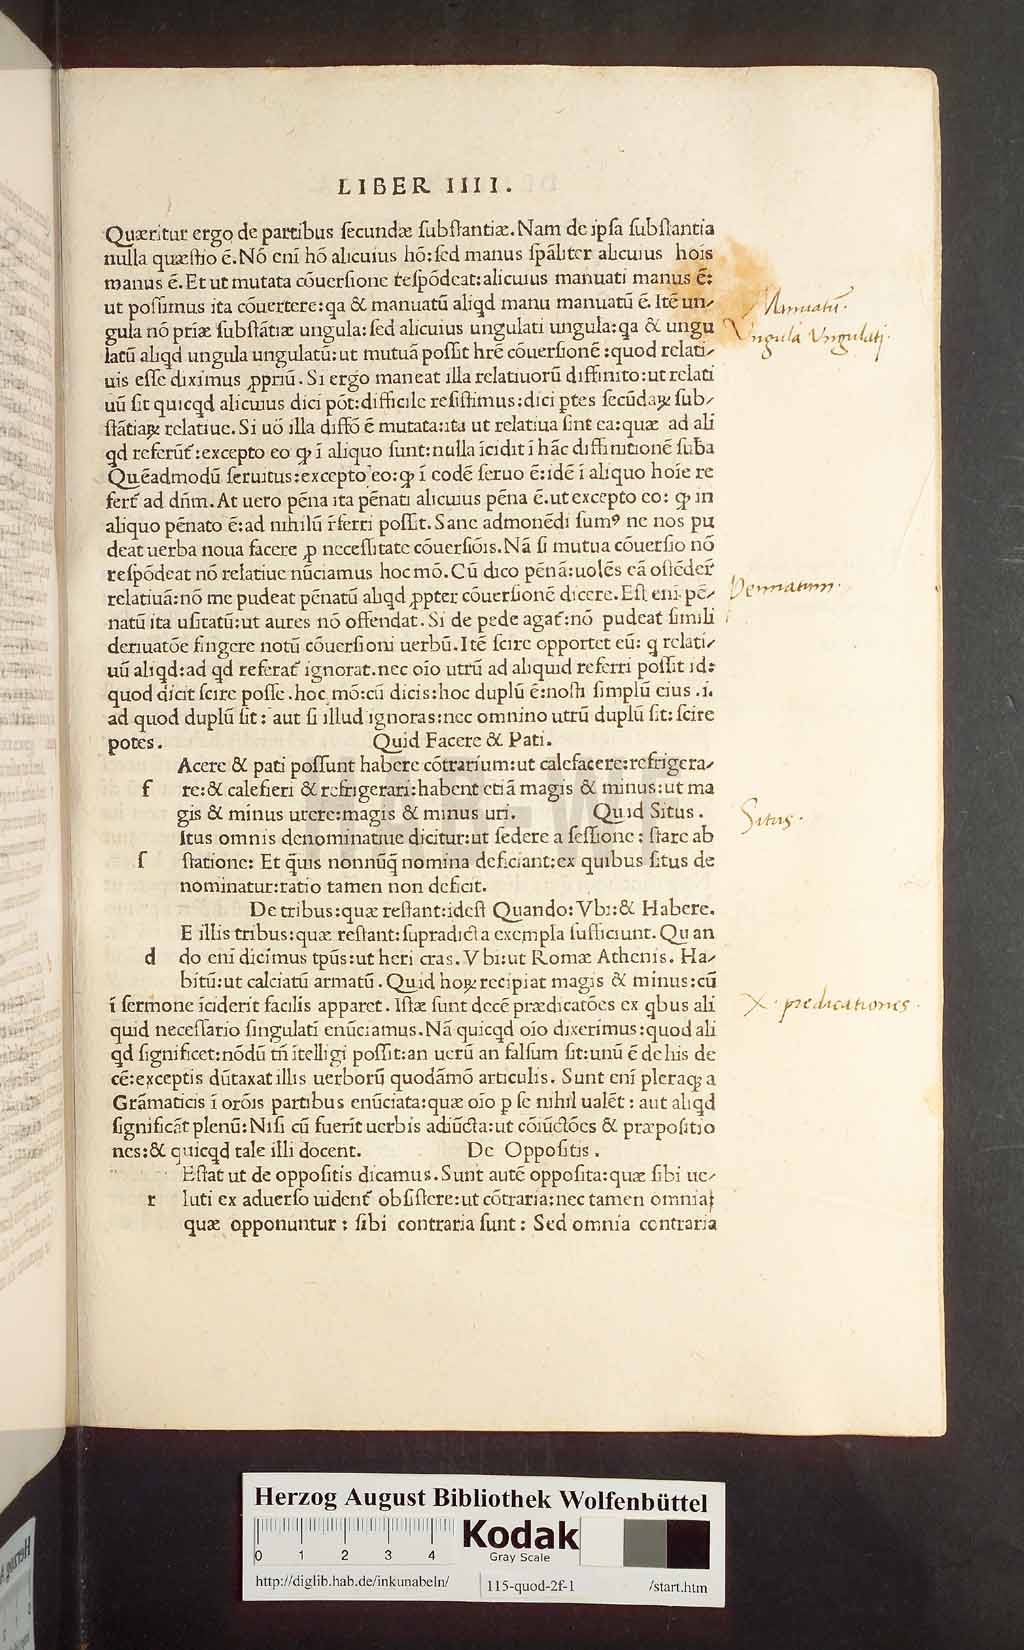 LIBER IIII.
Quæritur ergo de partibus ſecundæ ſubſtantiæ. Nam de ipſa ſubſtantia
nulla quæſtio ē. Nō eni hō alicuius hō: ſed manus ſpāliter alicuius hois
manus ē. Et ut mutata cōuerſione reſpōdeat: alicuius manuati manus ē:
ut poſſimus ita cōuertere: qa & manuatū aliqd manu manuatū ē. Itē un-
gula nō priæ ſubſtātiæ ungula: ſed alicuius ungulati ungula: qa & ungu
latū aliqd ungula ungulatū: ut mutuā poſſit hrē cōuerſionē: quod relati-
uis eſſe diximus ꝓpriū. Si ergo maneat illa relatiuorū diffinito: ut relati
uū ſit quicqd alicuius dici pōt: difficile reſiſtimus: dici ptes ſecūdaꝝ ſub-
ſtātiaꝝ relatiue. Si uō illa diffō ē mutata: ita ut relatiua ſint ea: quæ ad ali
qd referūt̄: excepto eo ꝙ ī aliquo ſunt: nulla īcidit ī hāc diffinitionē ſuba
Quēadmodū ſeruitus: excepto eo: ꝙ ī eodē ſeruo ē: idē ī aliquo hoīe re
fert̄ ad dn̄m. At uero pēna ita pēnati alicuius pēna ē. ut excepto eo: ꝙ in
aliquo pēnato ē: ad nihilū r̄ferri poſſit. Sane admonēdi ſumꝰ ne nos pu
deat uerba noua facere ꝓ neceſſitate cōuerſiōis. Nā ſi mutua cōuerſio nō
reſpōdeat nō relatiue nūciamus hoc mō. Cū dico pēnā: uolēs eā oſtēder̄
relatiuā: nō me pudeat pēnatū aliqd ꝓpter cōuerſionē dicere. Eſt eni pē-
natū ita uſitatū: ut aures nō offendat. Si de pede agat̄: nō pudeat ſimili
deriuatōe fingere notū cōuerſioni uerbū. Itē ſcire opportet eū: q relati-
uū aliqd: ad qd referat̄ ignorat. nec oīo utrū ad aliquid referri poſſit id:
quod dicit ſcire poſſe. hoc mō: cū dicis: hoc duplū ē: noſti ſimplū eius .i.
ad quod duplū ſit: aut ſi illud ignoras: nec omnino utrū duplū ſit: ſcire
potes. Quid Facere & Pati.
Acere & pati poſſunt habere cōtrarium: ut calefacere: refrigera-
f re: & calefieri & refrigerari: habent etiā magis & minus: ut ma
gis & minus urere: magis & minus uri. Quid Situs.
Itus omnis denominatiue dicitur: ut ſedere a ſeſſione: ſtare ab
ſ ſtatione: Et q̄uis nonnūq̄ nomina deficiant: ex quibus ſitus de
nominatur: ratio tamen non deficit.
De tribus: quæ reſtant: ideſt Quando: Vbi: & Habere.
E illis tribus: quæ reſtant: ſupradicta exempla ſufficiunt. Quan
d do eni dicimus tpūs: ut heri cras. Vbi: ut Romæ Athenis. Ha-
bitū: ut calciatū armatū. Quid hoꝝ recipiat magis & minus: cū
ī ſermone īciderit facilis apparet. Iſtæ ſunt decē prædicatōes ex qbus ali
quid neceſſario ſingulati enūciamus. Nā quicqd oīo dixerimus: quod ali
qd ſignificet: nōdū tn̄ ītelligi poſſit: an uerū an falſum ſit: unū ē de his de
cē: exceptis dūtaxat illis uerborū quodāmō articulis. Sunt eni pleraqꝫ a
Grāmaticis ī orōis partibus enūciata: quæ oīo p ſe nihil ualēt: aut aliqd
ſignificāt plenū: Niſi cū fuerīt uerbis adiūcta: ut cōiūctōes & præpoſitio
nes: & quicqd tale illi docent. De Oppoſitis.
Eſtat ut de oppoſitis dicamus. Sunt autē oppoſita: quæ ſibi ue-
r luti ex aduerſo uident̄ obſiſtere: ut cōtraria: nec tamen omnia
quæ opponuntur: ſibi contraria ſunt: Sed omnia contraria
Manuatū.
Vngula Vngulati.
Pennatum.
Situs.
X. predicationes.
Herzog August Bibliothek Wolfenbüttel
0 1 2 3 4
Kodak
Gray Scale
http://diglib.hab.de/inkunabeln/ 115-quod-2f-1 /start.htm
HAB-WF